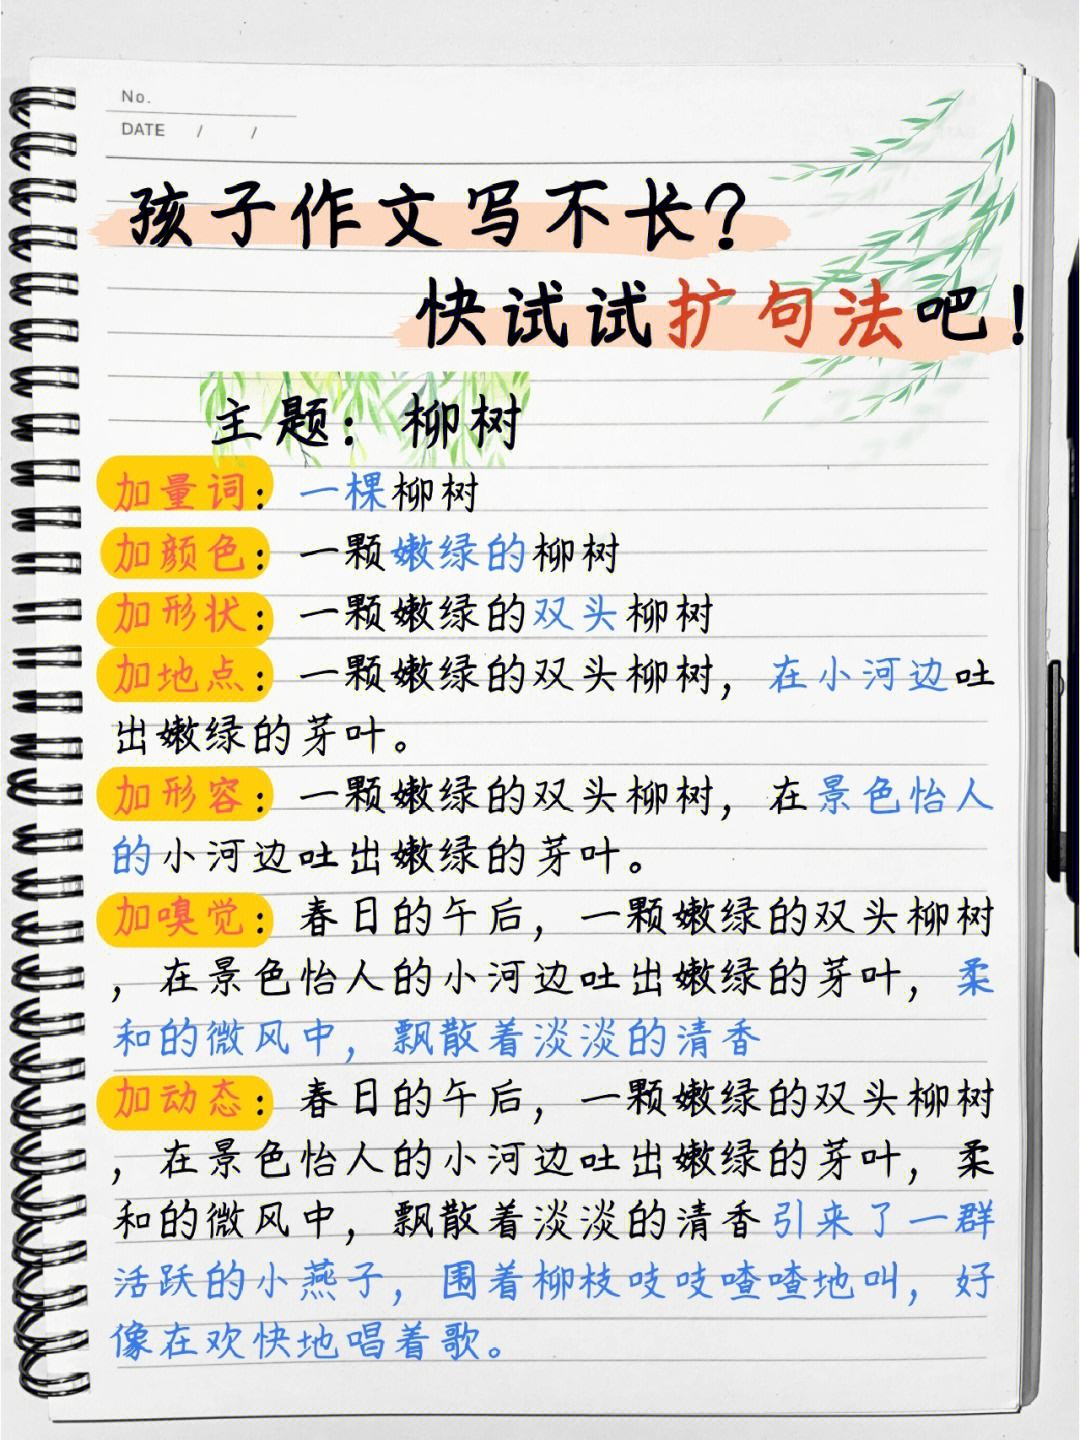 No.
DATE / /
孩子作文写不长?
快试试扩句法吧!
主题: 柳树
加量词: 一棵柳树
加颜色: 一颗嫩绿的柳树
加形状: 一颗嫩绿的双头柳树
加地点: 一颗嫩绿的双头柳树，在小河边吐
出嫩绿的芽叶。
加形容: 一颗嫩绿的双头柳树，在景色怡人
的小河边吐出嫩绿的芽叶。
加嗅觉: 春日的午后，一颗嫩绿的双头柳树
，在景色怡人的小河边吐出嫩绿的芽叶，柔
和的微风中，飘散着淡淡的清香
加动态: 春日的午后，一颗嫩绿的双头柳树
，在景色怡人的小河边吐出嫩绿的芽叶，柔
和的微风中，飘散着淡淡的清香引来了一群
活跃的小燕子，围着柳枝吱吱喳喳地叫，好
像在欢快地唱着歌。